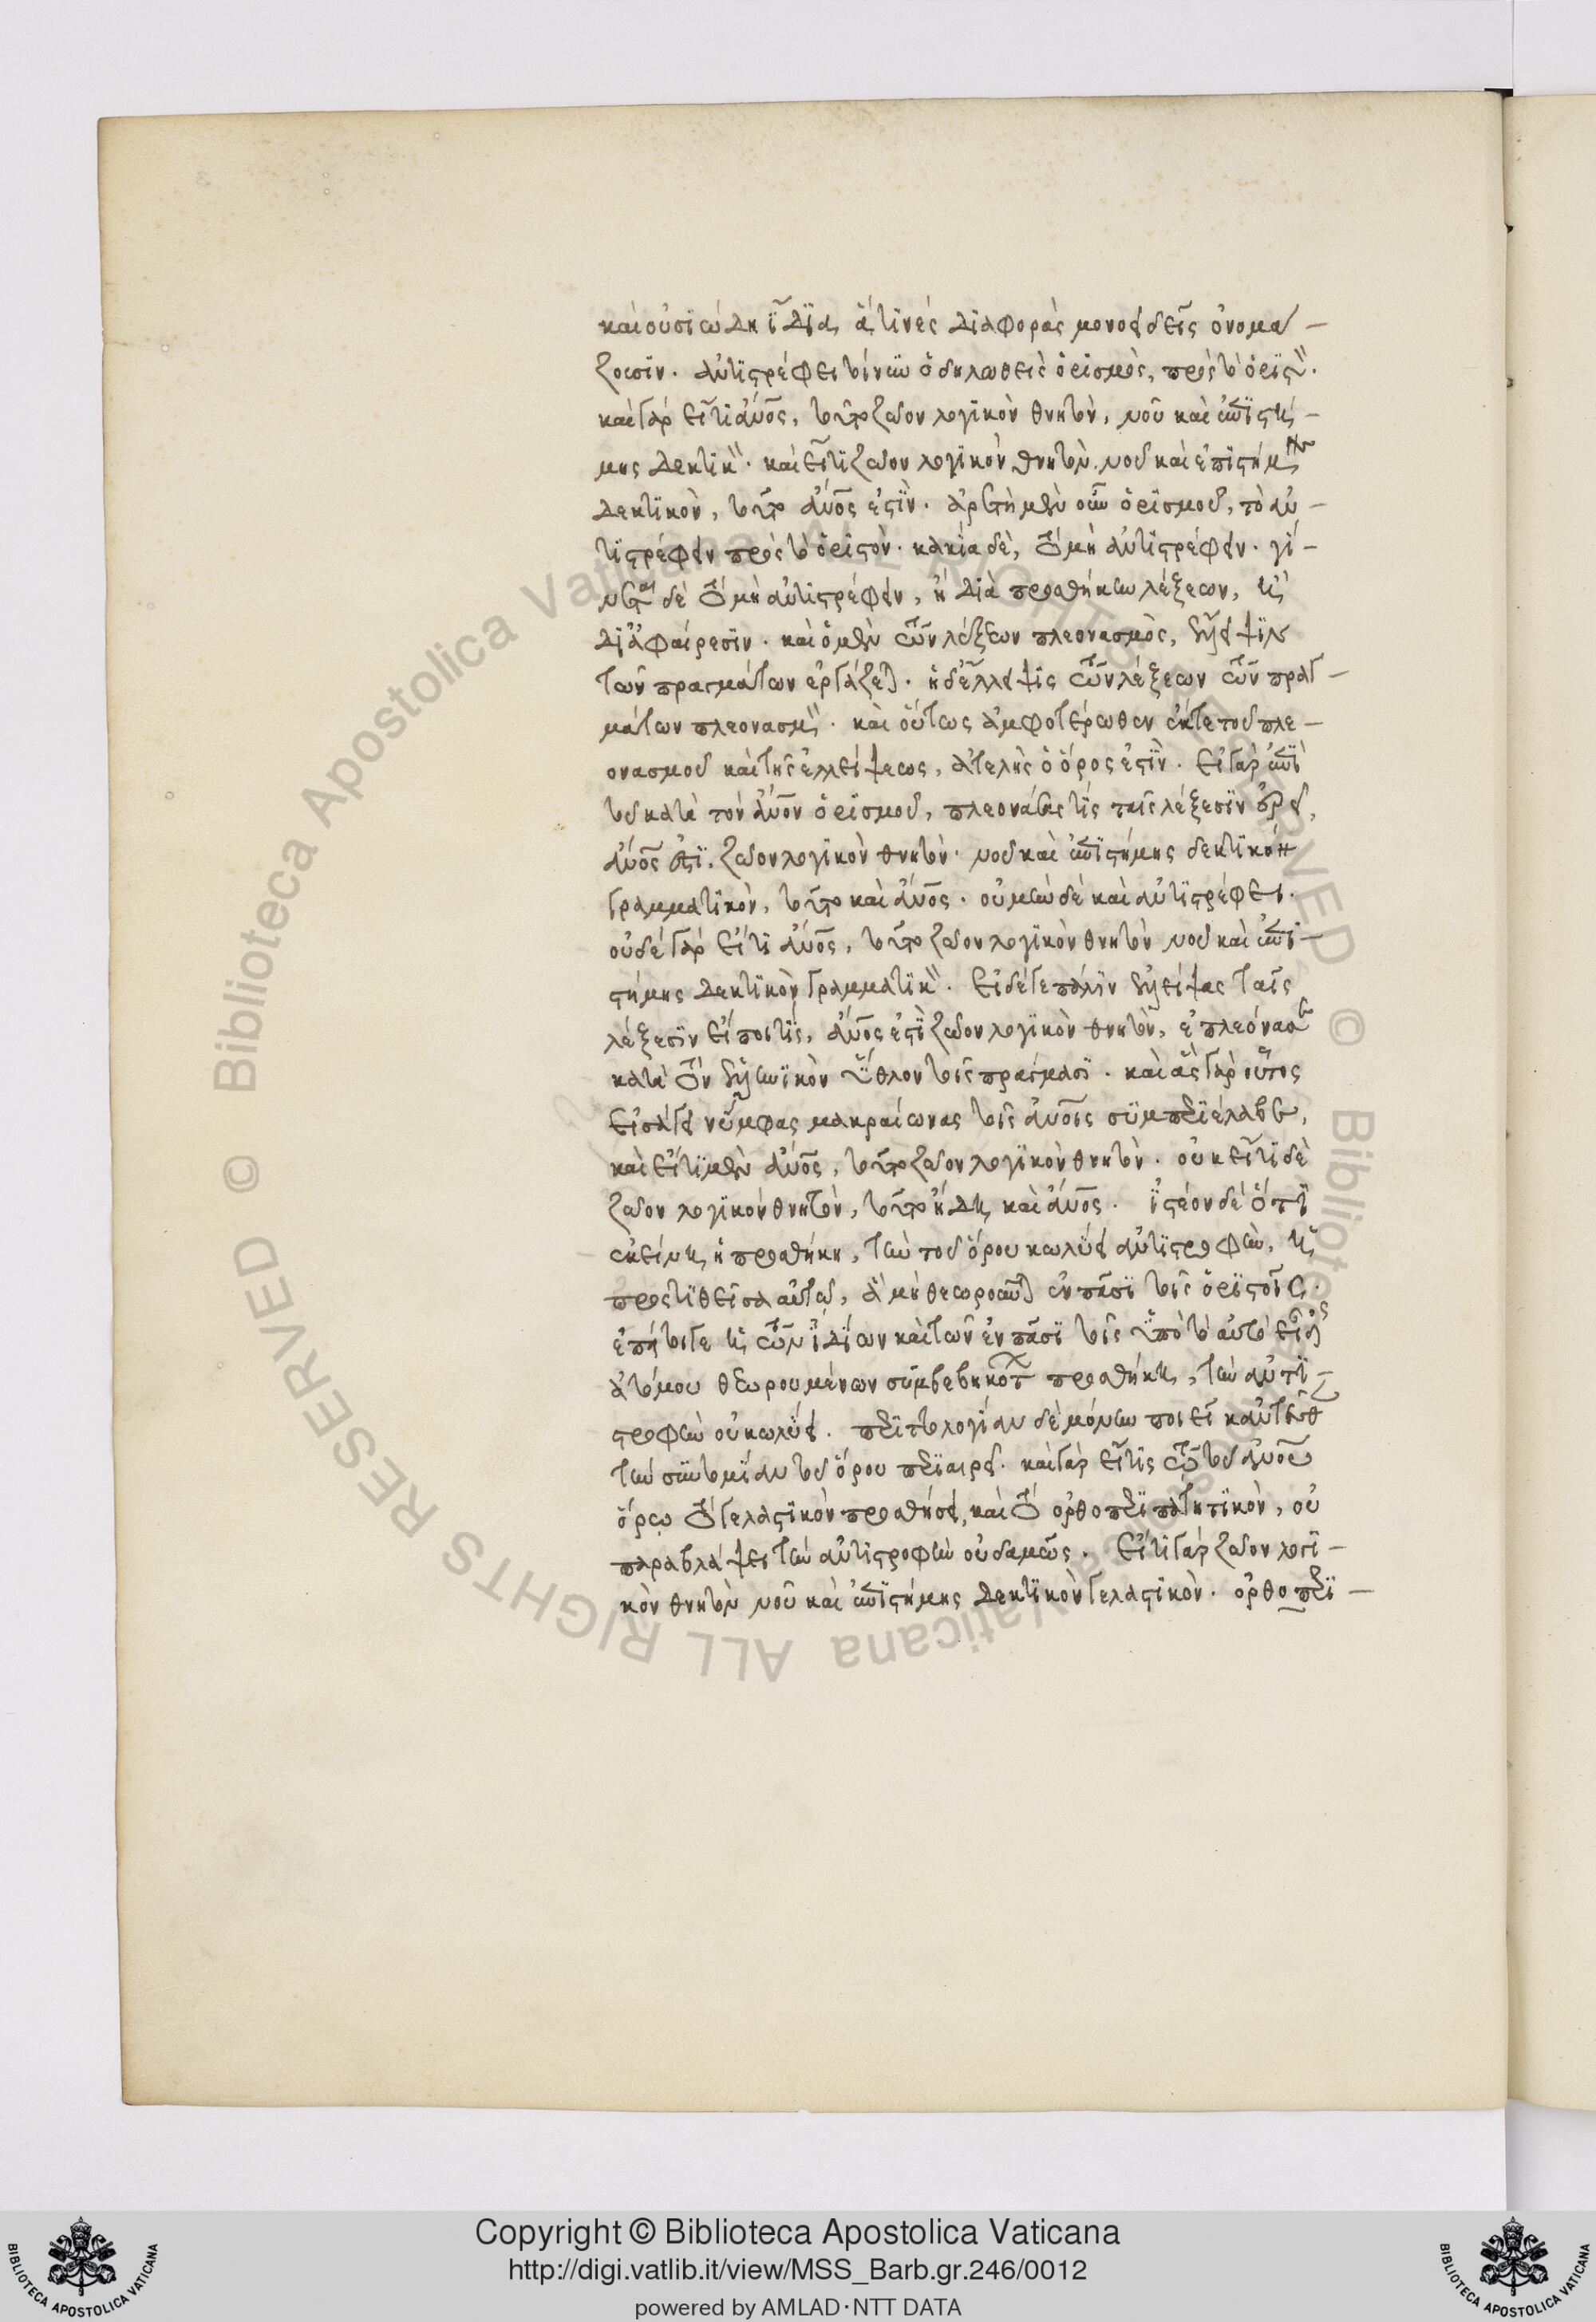 καὶ οὐσιώδη ἴδια, ἅ τινὲς διαφορὰς μονοειδεῖς ὀνομά –
ζουσιν. ἀντιστρέφει τοίνυν ὁ δηλωθεὶς ὁρισμὸς, πρὸς τὸ ὁριστὸν.
καὶ γὰρ εἴ τι ἄνος, τοῦτο ζῶον λογικὸν θνητὸν, νοῦ καὶ ἐπιστή –
μης δεκτικὸν. καὶ εἴ τι ζῶον λογικὸν θνητὸν νοῦ καὶ ἐπιστήμης
δεκτικὸν, τοῦτο ἄνος ἐστὶν. ἀρετὴ μὲν οὖν ὁρισμοῦ, τὸ ἀν –
τιστρέφειν πρὸς τὸ ὁριστὸν. κακία δὲ, τὸ μὴ ἀντιστρέφειν. γί –
νεται δὲ τὸ μὴ ἀντιστρέφειν, ἢ διὰ προσθήκην λέξεων, ἢ
δι' ἀφαίρεσιν. καὶ ὁ μὲν τῶν λέξεων πλεονασμὸς, ἔλλειψιν
τῶν πραγμάτων ἐργάζεται. ἡ δ' ἔλλειψις τῶν λέξεων τῶν πραγ –
μάτων πλεονασμὸν. καὶ οὕτως ἀμφοτέρωθεν ἔκ τε τοῦ πλε –
ονασμοῦ καὶ τῆς ἐλλείψεως, ἀτελὴς ὁ ὅρος ἐστὶν. εἰ γὰρ ἐπὶ
τοῦ κατὰ τὸν ἄνον ὁρισμοῦ, πλεονάσας τις ταῖς λέξεσιν ἐρεῖ,
ἄνος ἐστὶ, ζῶον λογικὸν θνητὸν. νοῦ καὶ ἐπιστήμης δεκτικὸν
γραμματικὸν, τοῦτο καὶ ἄνος. οὐ μὴν δὲ καὶ ἀντιστρέφει.
οὐδὲ γὰρ εἴ τι ἄνος, τοῦτο ζῶον λογικὸν θνητὸν νοῦ καὶ ἐπι –
στήμης δεκτικὸν γραμματικὸν. εἰ δέ γε πάλιν ἐλλείψας ταῖς
λέξεσιν εἴποι τὶς, ἄνος ἐστὶ ζῶον λογικὸν θνητὸν, ἐπλεόνασε
κατὰ τὸν ἑλληνικὸν ὕθλον τοῖς πράγμασι. καὶ ἃς γὰρ οὗτος
εἰσάγει νύμφας μακραίωνας τοῖς ἄνοις συμπεριέλαβε,
καὶ εἴ τι μὲν ἄνος, τοῦτο ζῶον λογικὸν θνητὸν. οὐκ εἴ τι δὲ
ζῶον λογικὸν θνητὸν, τοῦτο ἤδη καὶ ἄνος. ἰστέον δὲ ὅτι
ἐκείνη ἡ προσθήκη, τὴν τοῦ ὅρου κωλύει ἀντιστροφὴν, ἡ
προστιθεῖσα αὐτῷ, ἃ μὴ θεωροῦνται ἐν πᾶσι τοῖς ὁριστοῖς.
ἐπεί τοιγε ἡ τῶν ἰδίων καὶ τῶν ἐν πᾶσι τοῖς ὑπὸ τὸ αὐτὸ εἶδος
ἀτόμου θεωρουμένων συμβεβηκότων προσθήκη, τὴν ἀντι –
στροφὴν οὐ κωλύει. περιττολογίαν δὲ μόνην ποιεῖ κἀντεῦθεν
τὴν συντομίαν τοῦ ὅρου περιαιρεῖ. καὶ γὰρ εἴ τις τῷ τοῦ ἄνου
ὅρῳ τὸ γελαστικὸν προσθήσει, καὶ τὸ ὀρθοπεριπατητικὸν, οὐ
παραβλάψει τὴν ἀντιστροφὴν οὐδαμῶς. εἴ τι γὰρ ζῶον λογι –
κὸν θνητὸν νοῦ καὶ ἐπιστήμης δεκτικὸν γελαστικὸν. ὀρθοπερι –
Copyright © Biblioteca Apostolica Vaticana
http://digi.vatlib.it/view/MSS_Barb.gr.246/0012
powered by AMLAD·NTT DATA